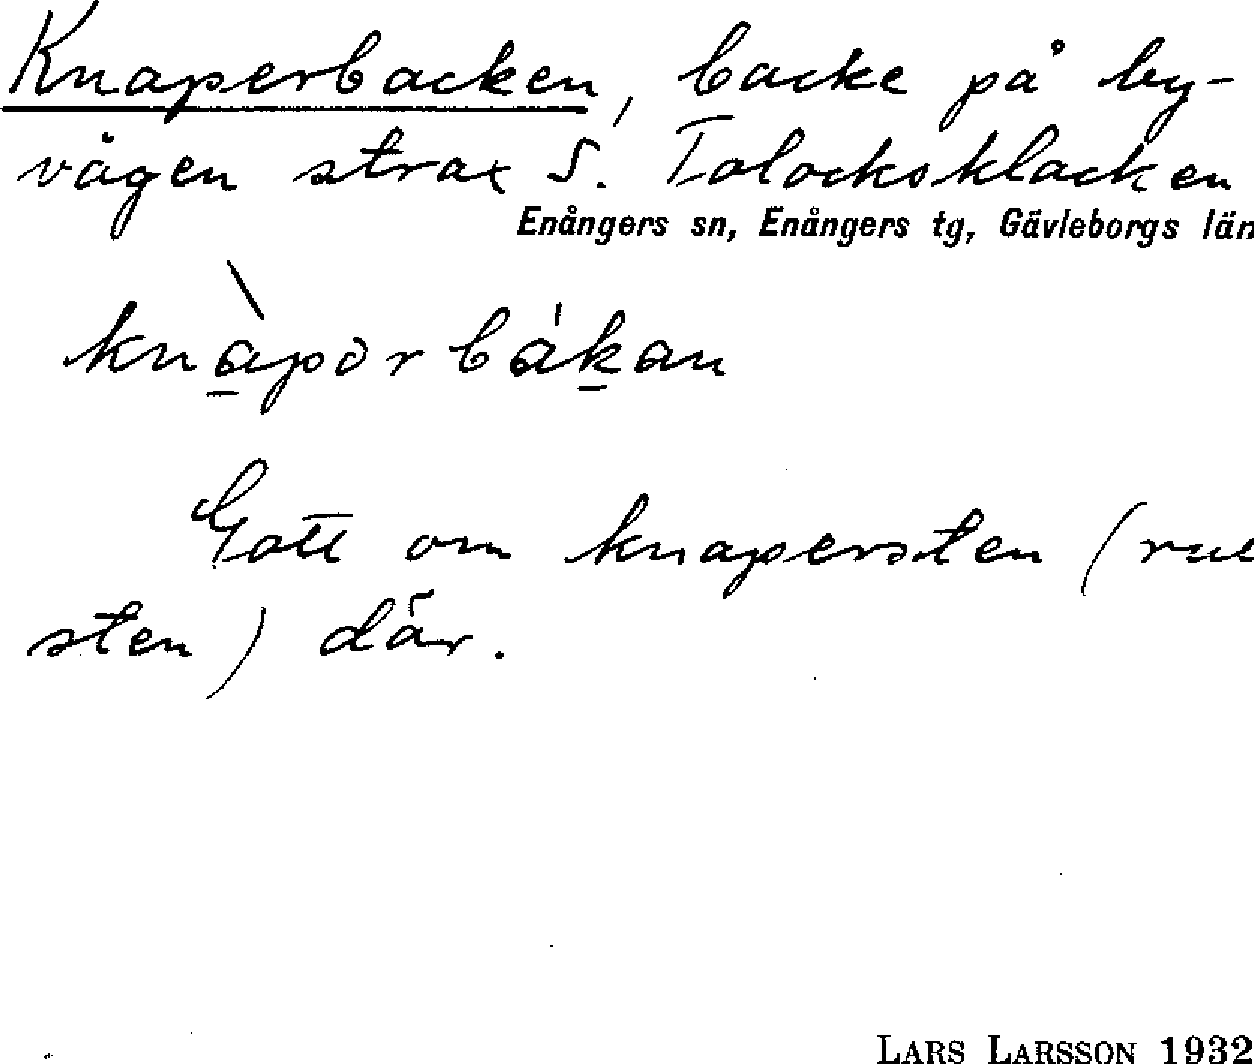 Knaperbacken, backe på by-
vägen strax S. Tolocksklacken
Enångers sn, Enångers tg, Gävleborgs län
knàpərbákan
Gott om knapersten (rul
sten) där.
LARS LARSSON 1932